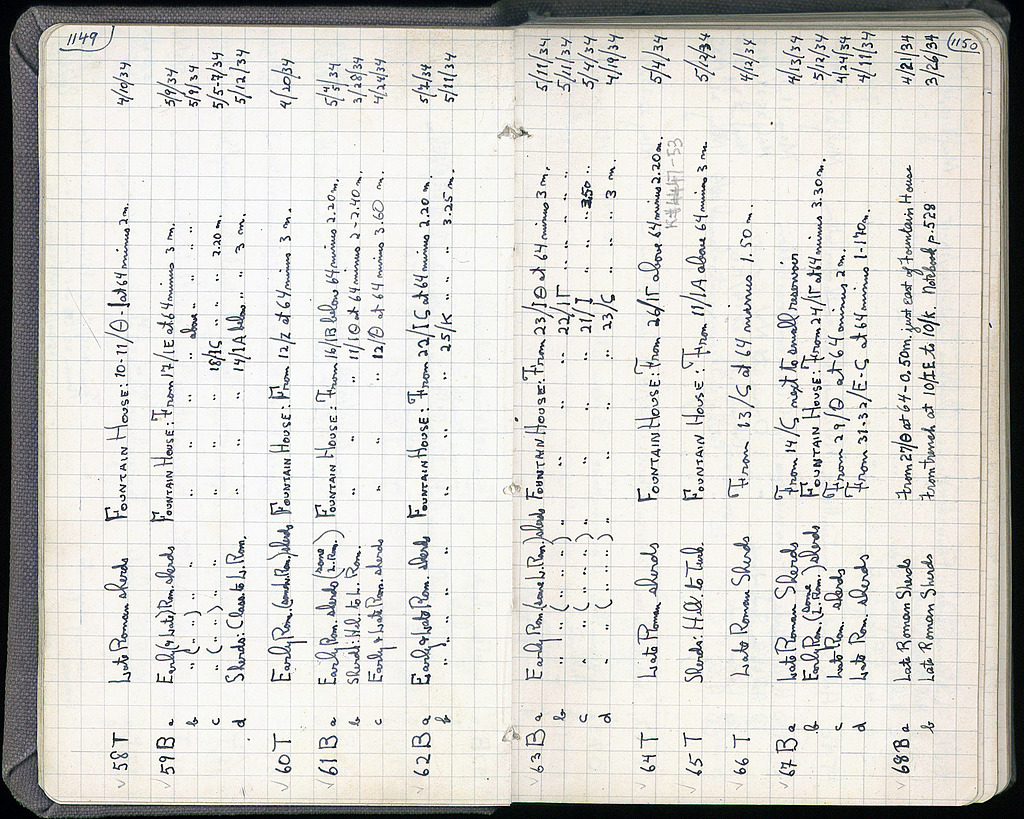 1149
58 T Late Roman sherds FOUNTAIN HOUSE: 10-11/Θ-I at 64 minus 2 m. 4/19/34
59 B a Early (& Late) Rom. sherds FOUNTAIN HOUSE: From 17/ΙΕ at 64 minus 3 m. 5/9/34
b " ( " ) " " " " above " " " 5/9/34
c " ( " ) " " " " 18/ΙϚ " " " 2.20 m. 5/5-7/34
d Sherds: Class. to L. Rom. " " 14/ΙΑ below " " 3 m. 5/12/34
60 T Early Rom. (some L. Rom.) sherds FOUNTAIN HOUSE: From 12/Ζ at 64 minus 3 m. 4/20/34
61 B a Early Rom. sherds (some L. Rom.) FOUNTAIN HOUSE: From 16/ΙΒ below 64 minus 2.20 m. 5/5/34
b Sherds: Hel. to L. Rom. " " " 11/ΙΘ at 64 minus 2-2.40 m. 3/28/34
c Early & Late Rom. sherds " " " 12/Θ at 64 minus 3.60 m. 4/24/34
62 B a Early & Late Rom. sherds FOUNTAIN HOUSE: From 22/ΙϚ at 64 minus 2.20 m. 5/7/34
b " " " " " " " " 25/Κ " " " 3.25 m. 5/11/34
1150
63 B a Early Rom. (some L. Rom.) sherds FOUNTAIN HOUSE: From 23/ΙΘ at 64 minus 3 m. 5/11/34
b " " ( " " " ) " " " " 22/ΙΓ " " " " " 5/11/34
c " " ( " " " ) " " " " 21/Ι " " " 3.50 " 5/4/34
d " " ( " " " ) " " " " 23/Ϛ " " " 3 m. 4/19/34
64 T Late Roman sherds FOUNTAIN HOUSE: From 26/ΙΓ above 64 minus 2.20 m. 5/4/34
65 T Sherds: Hel. to Turk. FOUNTAIN HOUSE: From 11/ΙΑ above 64 minus 3 m. 5/12/34
66 T Late Roman Sherds From 13/Ϛ at 64 minus 1.50 m. 4/12/34
67 B a Late Roman Sherds From 14/Ϛ next to small reservoir 4/13/34
b Early Rom. (some L. Rom.) sherds FOUNTAIN HOUSE: From 24/ΙΓ at 64 minus 3.30 m. 5/12/34
c Late Rom. sherds From 29/Θ at 64 minus 2 m. 4/24/34
d Late Rom. sherds From 31-32/Ε-Ϛ at 64 minus 1-1.70 m. 4/11/34
68 B a Late Roman Sherds From 27/Θ at 64-0.50 m. just east of Fountain House 4/21/34
b Late Roman Sherds From trench at 10/ΙΕ to 10/Κ. Notebook p. 528 3/26/34